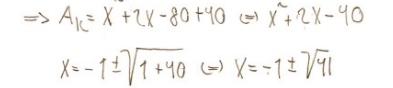 => A_k = X + 2X - 80 + 40 <=> X² + 2X - 40
X = -1 ± √(1+40) <=> X = -1 ± √41